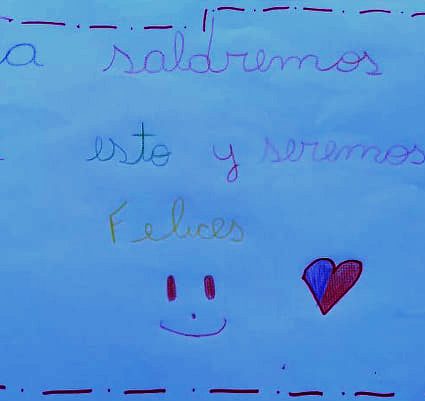 a saldremos
esto y seremos
Felices